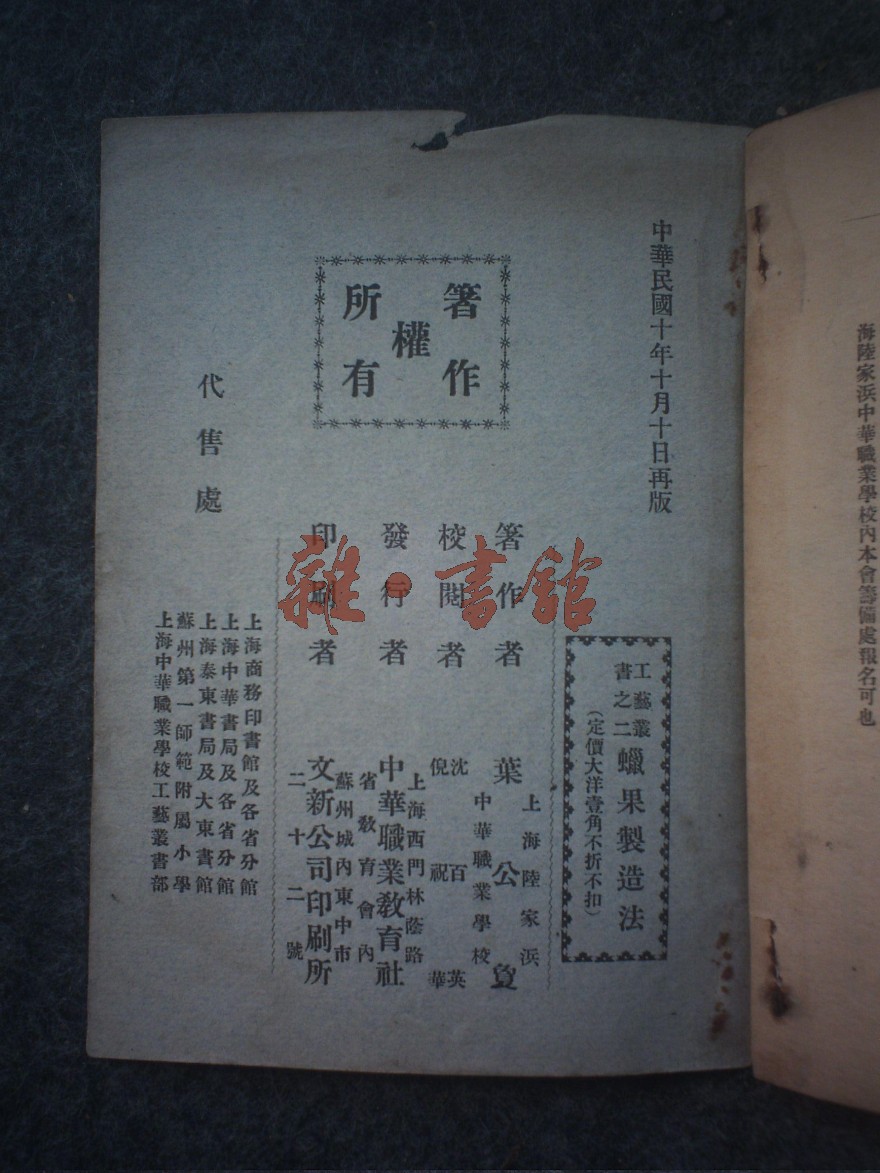 海陸家浜中華職業學校內本會籌備處報名可也
中華民國十年十月十日再版
工藝叢
書之二
蠟果製造法
(定價大洋壹角不折不扣)
著作
權
所有
著作者
上海陸家浜
葉公
中華職業學校
校閱者
沈百英
倪祝華
發行者
上海西門林蔭路
中華職業教育社
省教育會內
印刷者
蘇州城內東中市
文新公司印刷所
二十二號
代售處
上海商務印書館及各省分館
上海中華書局及各省分館
上海泰東書局及大東書館
蘇州第一師範附屬小學
上海中華職業學校工藝叢書部
雜·書館